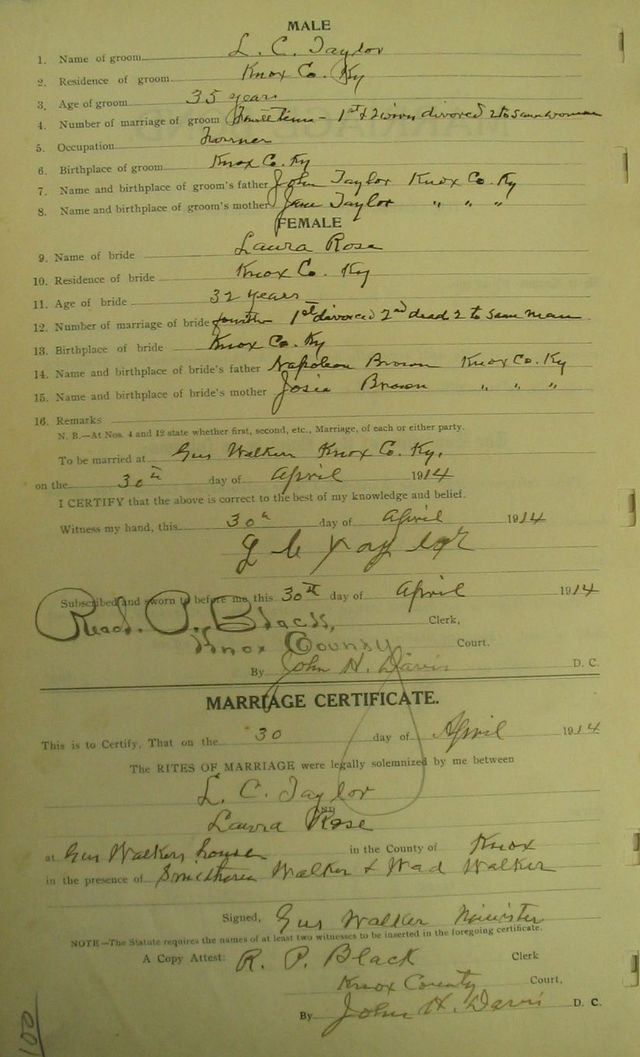 MALE
1. Name of groom L. C. Taylor
2. Residence of groom Knox Co. Ky
3. Age of groom 35 years
4. Number of marriage of groom 1st & 2 divorced 2 to same woman
5. Occupation Farmer
6. Birthplace of groom Knox Co. Ky
7. Name and birthplace of groom's father John Taylor Knox Co. Ky
8. Name and birthplace of groom's mother Jane Taylor " " "
FEMALE
9. Name of bride Laura Rose
10. Residence of bride Knox Co. Ky
11. Age of bride 32 years
12. Number of marriage of bride fourth 1st divorced 2nd dead 2 to same man
13. Birthplace of bride Knox Co. Ky
14. Name and birthplace of bride's father Napoleon Brown Knox Co. Ky
15. Name and birthplace of bride's mother Josie Brown " " "
16. Remarks
N. B.—At Nos. 4 and 12 state whether first, second, etc., Marriage, of each or either party.
To be married at Gus Walker Knox Co. Ky.
on the 30th day of April 1914
I CERTIFY that the above is correct to the best of my knowledge and belief.
Witness my hand, this 30th day of April 1914
L C Taylor
Subscribed and sworn to before me this 30th day of April 1914
Read. P. Black, Clerk,
Knox County Court.
By John H. Davis D. C.
MARRIAGE CERTIFICATE.
This is to Certify, That on the 30 day of April 1914
The RITES OF MARRIAGE were legally solemnized by me between
L. C. Taylor
AND
Laura Rose
at Gus Walkers house in the County of Knox
in the presence of Walker & Wad Walker
Signed, Gus Walker Minister
NOTE—The Statute requires the names of at least two witnesses to be inserted in the foregoing certificate.
A Copy Attest: R. P. Black Clerk
Knox County Court,
By John H. Davis D. C.